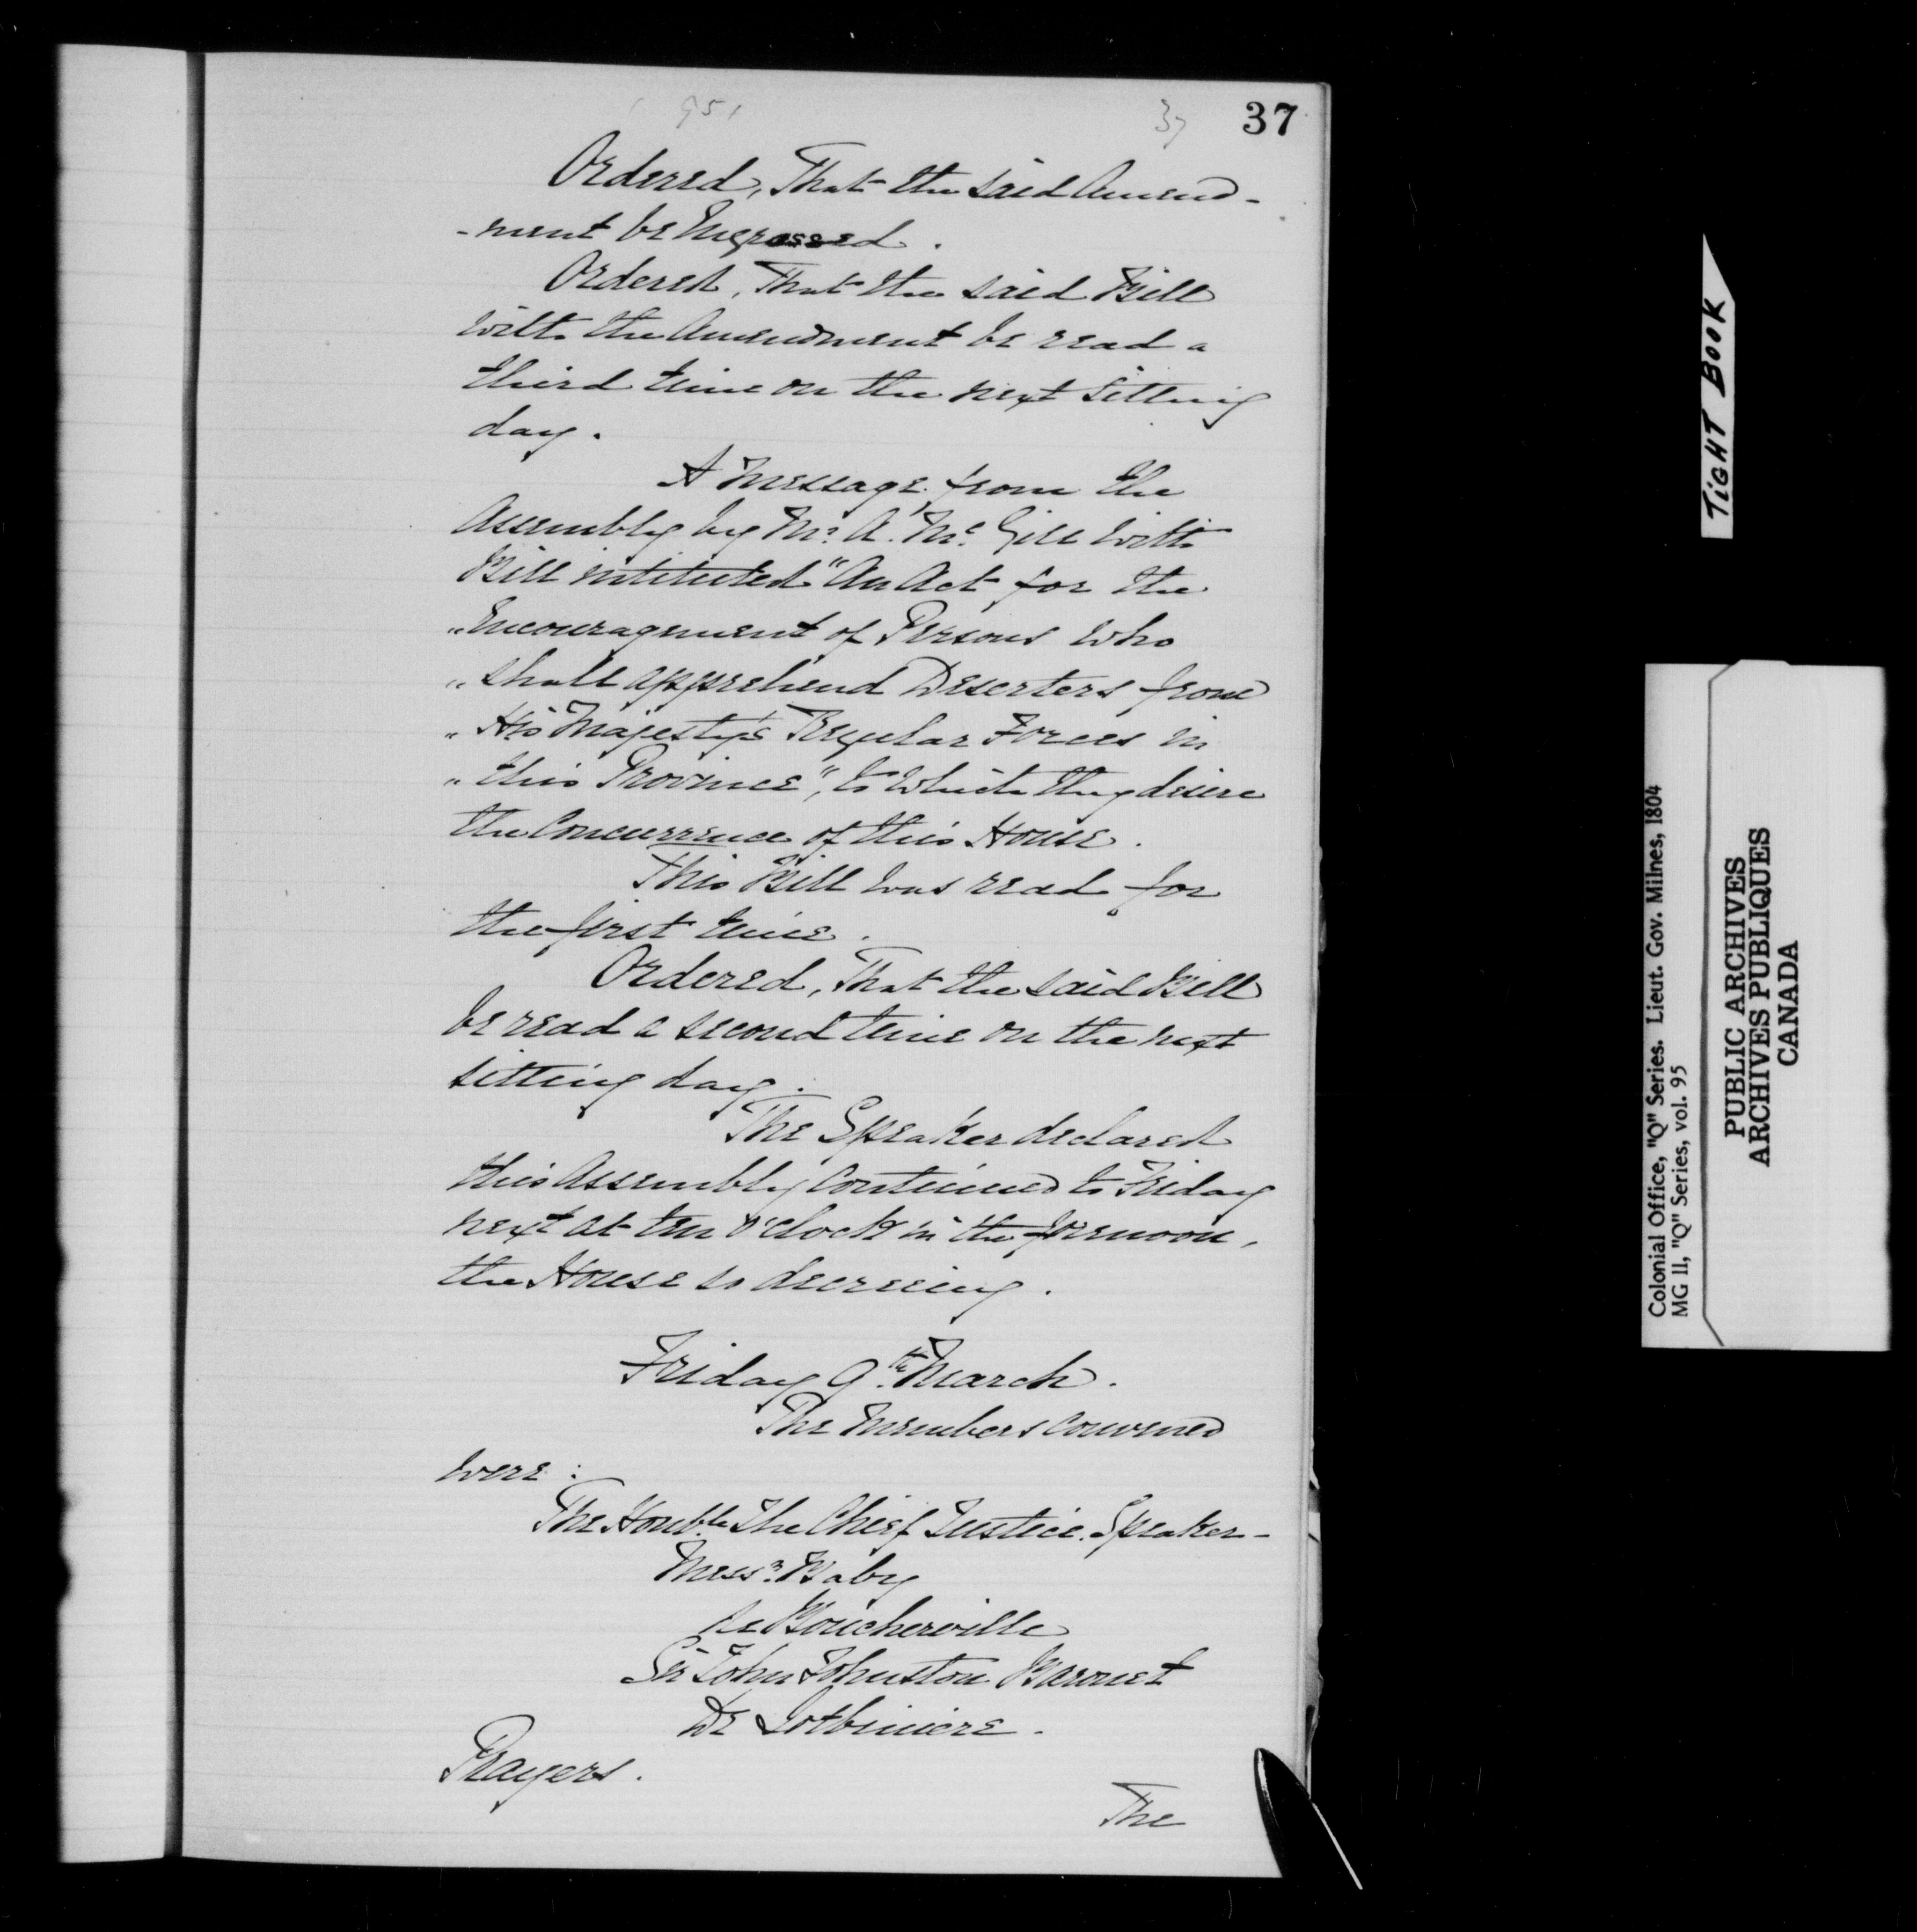 951
37
37
Ordered, That the said Amend-
-ment be Engrossed.
Ordered, That the said Bill
with the Amendment be read a
third time on the next Sitting
day.
A Message from the
Assembly by Mr. A. Mc. Gill with
Bill intituled "An Act for the
"Encouragement of Persons who
"shall apprehend Deserters from
"His Majesty's Regular Forces in
"this Province", to which they desire
the Concurrence of this House.
This Bill was read for
the first time.
Ordered, That the said Bill
be read a second time on the next
sitting day.
The Speaker declared
this Assembly continued to Friday
next at ten o'clock in the forenoon,
the House so decreeing.
Friday 9th. March.
The Members convened
were:
The Honble. The Chief Justice. Speaker-
Messrs. Baby
de Boucherville
Sir John Johnston Baronet
De Lotbiniere.
Prayers.
The
TIGHT BOOK
Colonial Office, "Q" Series. Lieut. Gov. Milnes, 1804
MG 11, "Q" Series, vol. 95
PUBLIC ARCHIVES
ARCHIVES PUBLIQUES
CANADA